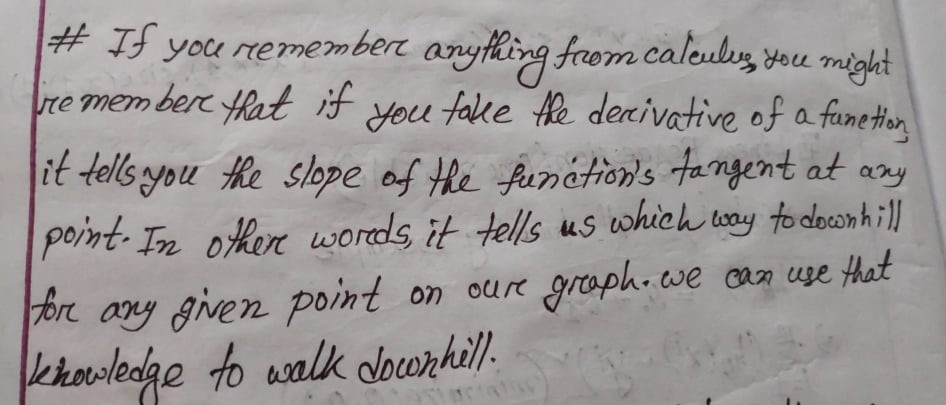 # If you remember anything from calculus, you might
remember that if you take the derivative of a function,
it tells you the slope of the function's tangent at any
point. In other words, it tells us which way to downhill
for any given point on our graph. we can use that
knowledge to walk downhill.